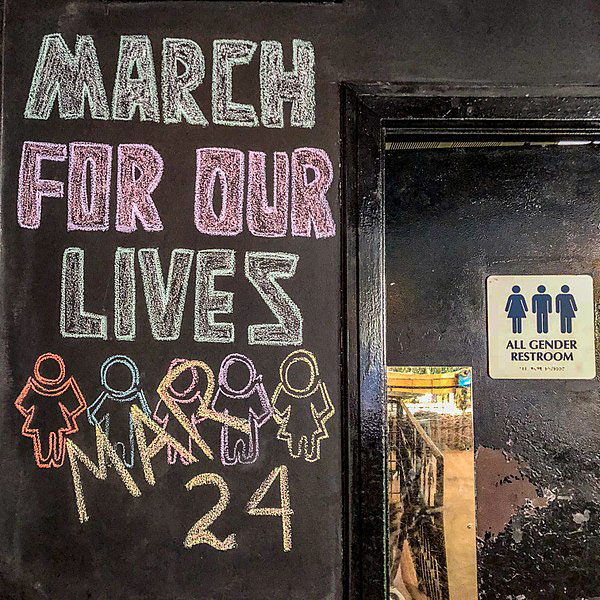 MARCH
FOR OUR
LIVES
MAR
24
ALL GENDER
RESTROOM